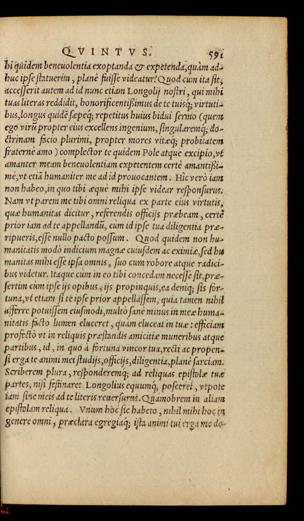 QVINTVS. 591
hi quidem beneuolentia exoptanda & expetenda, quàm ad-
huc ipse statuerim, planè fuisse videatur? Quod cùm ita sit,
accesserit autem ad id nunc etiam Longolij nostri, qui mihi
tuas literas reddidit, honorificentissimus de te tuisq́; virtuti-
bus, longus quidē sæpeq́; repetitus huius bidui sermo (quem
ego virū propter eius excellens ingenium, singularemq́; do-
ctrinam facio plurimi, propter mores vitæq́; probitatem
fraternè amo) complector te quidem Pole atque excipio, vt
amanter meam beneuolentiam expetentem certè amantissi-
mè, vt etiā humaniter me ad id prouocantem. Hic verò iam
non habeo, in quo tibi æquè mihi ipse videar responsurus.
Nam vt parem me tibi omni reliqua ex parte eius virtutis,
quæ humanitas dicitur, referendis officijs præbeam, certè
prior iam ad te appellandū, cum id ipse tua diligentia præ-
ripueris, esse nullo pacto possum. Quod quidem non hu-
manitatis modò indicium magnæ cuiusdam ac eximiæ, sed hu
manitas mihi esse ipsa omnis, suo cum robore atque radici-
bus videtur. Itaque cùm in eo tibi concedam necesse sit, præ-
sertim cùm ipse ijs opibus, ijs propinquis, ea deniq́; sis for-
tuna, vt etiam si te ipse prior appellassem, quia tamen nihil
afferre potuissem eiusmodi, multò sanè minus in meæ huma-
nitatis facto lumen eluceret, quàm eluceat in tuæ: efficiam
profectò vt in reliquis præstandis amicitiæ muneribus atque
partibus, id, in quo à fortuna vincor tua, recti ac propen-
si erga te animi mei studijs, officijs, diligentia, planè sarciam.
Scriberem plura, responderemq́; ad reliquas epistolæ tuæ
partes, nisi festinaret Longolius equumq́; posceret, vtpote
iam sine meis ad te literis reuersurus. Quamobrem in aliam
epistolam reliqua. Vnum hoc sic habeto, nihil mihi hoc in
genere omni, præclara egregiaq́; ista animi tui erga me do-